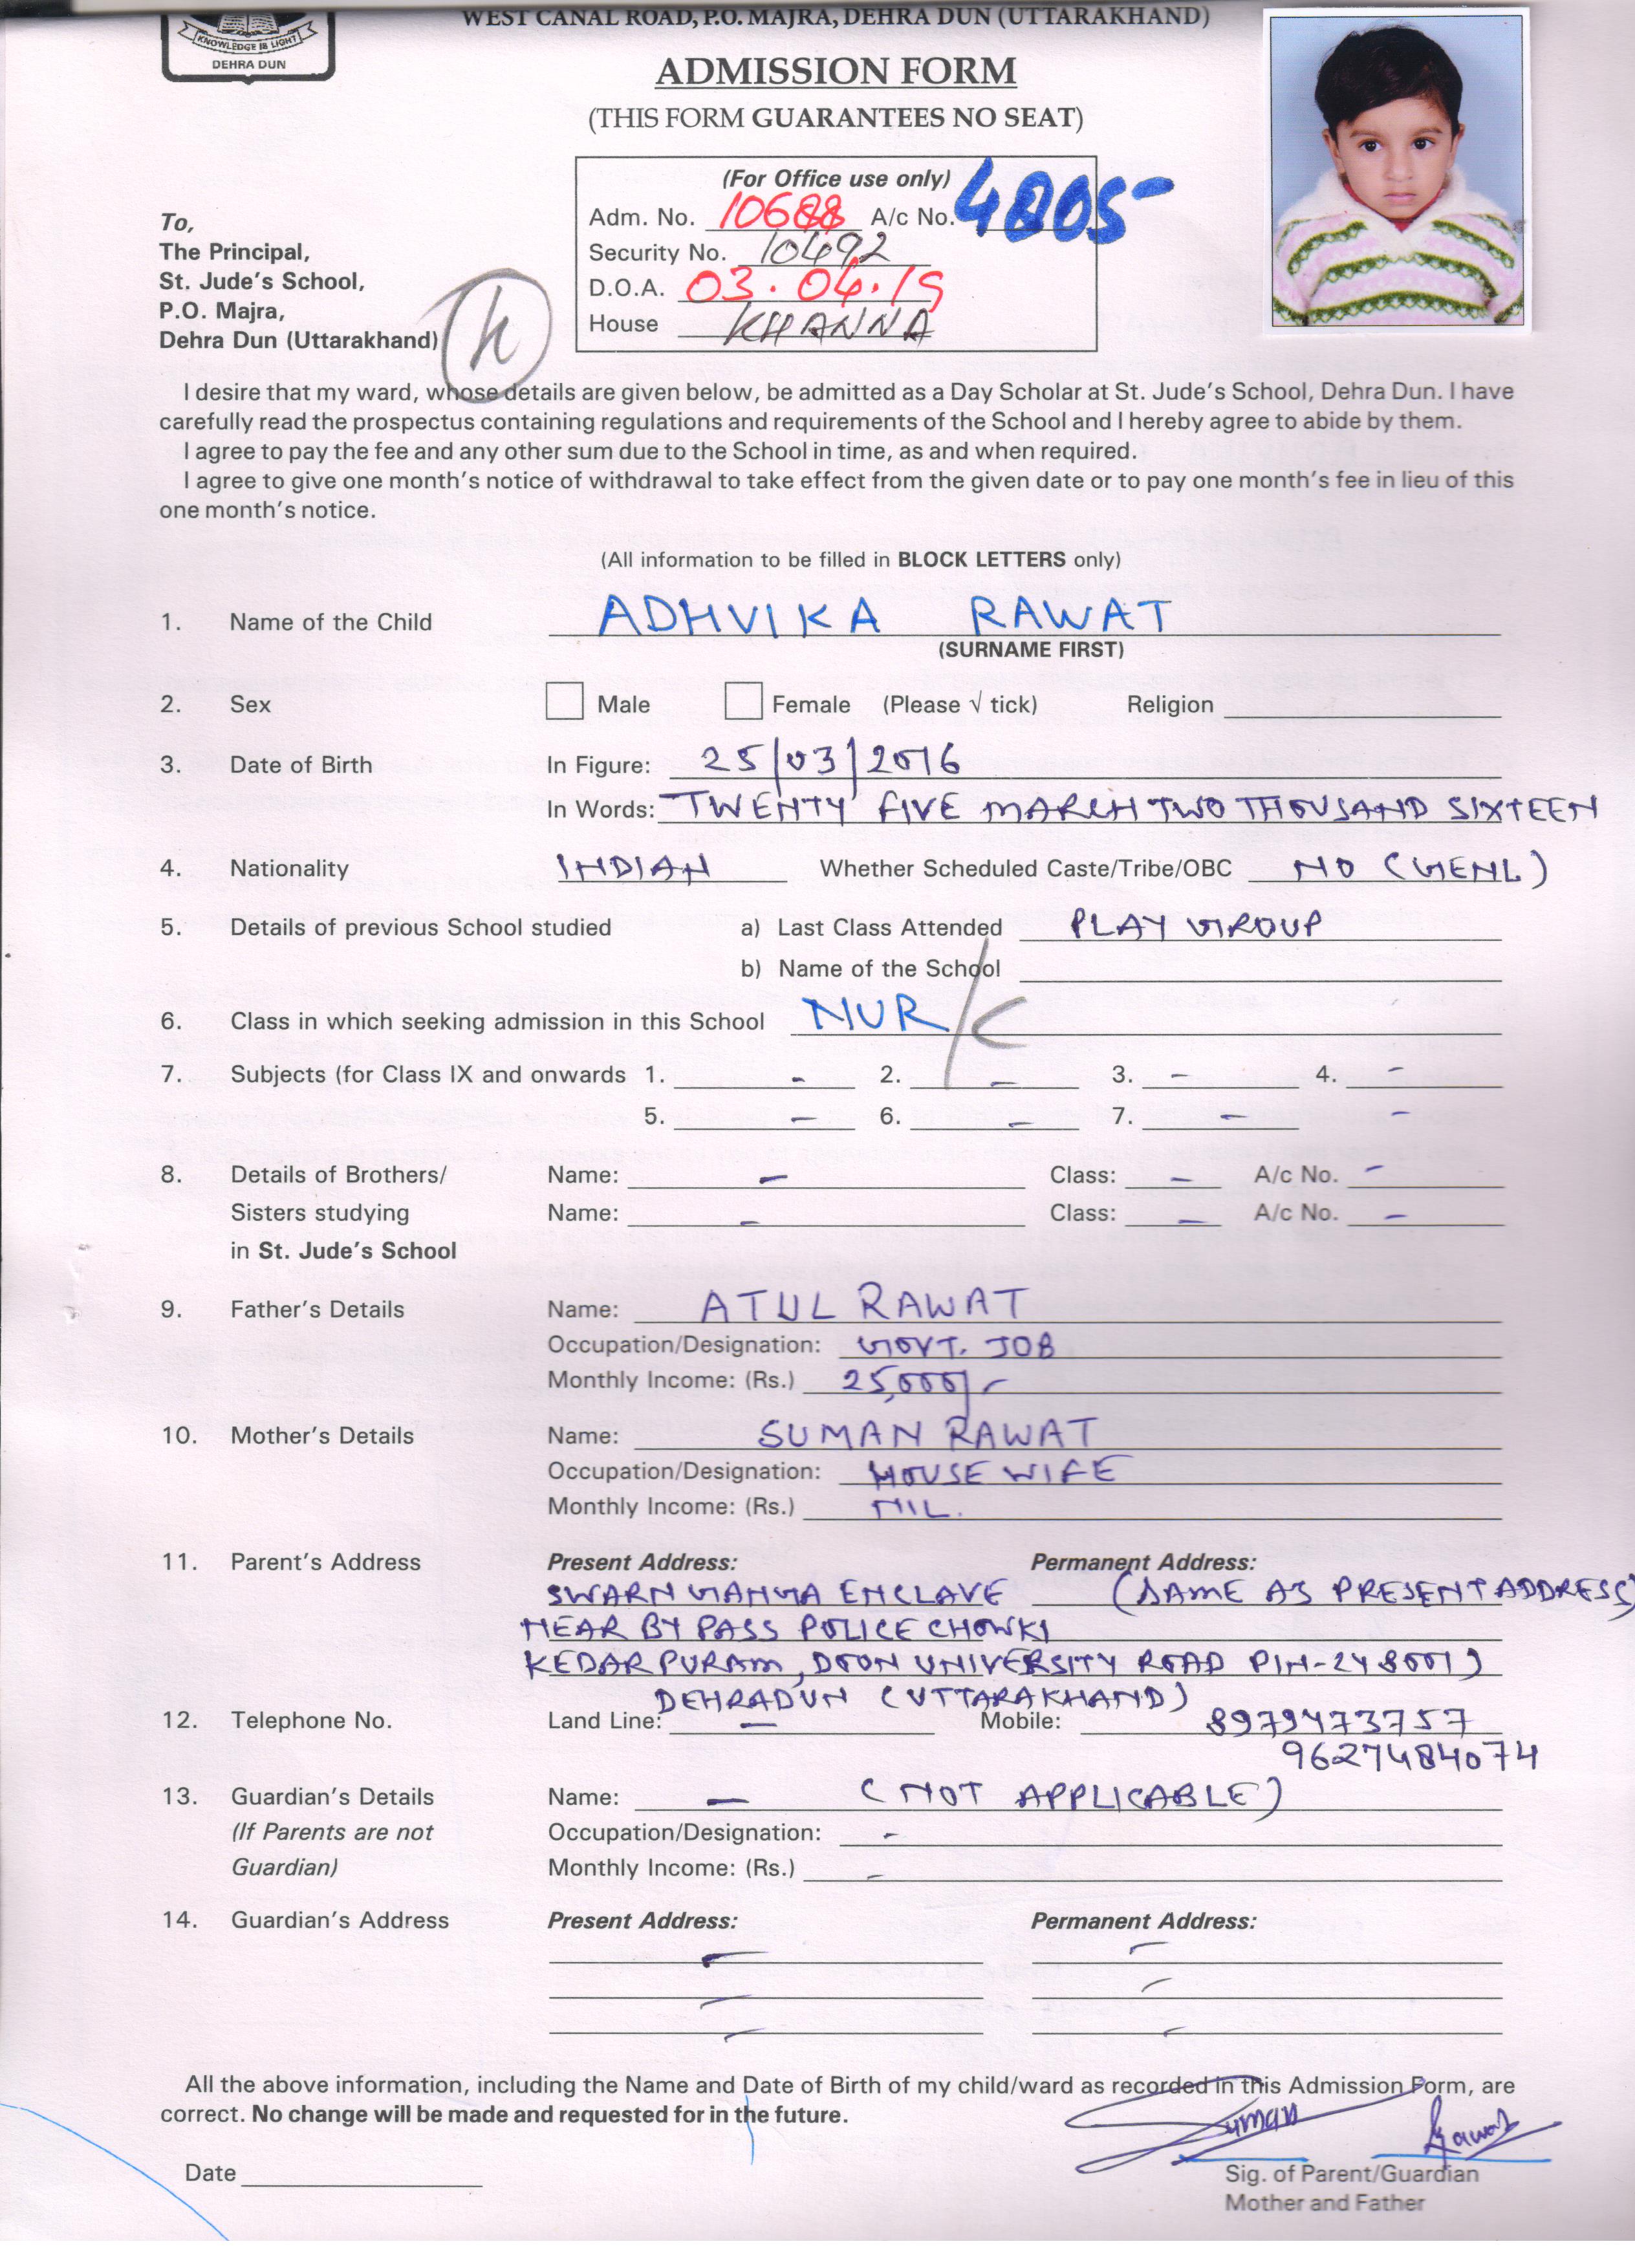 WEST CANAL ROAD, P.O. MAJRA, DEHRA DUN (UTTARAKHAND)
KNOWLEDGE IS LIGHT
DEHRA DUN
ADMISSION FORM
(THIS FORM GUARANTEES NO SEAT)
(For Office use only)
Adm. No. 10688 A/c No. 4805
Security No. 10492
D.O.A. 03.04.19
House KHANNA
To,
The Principal,
St. Jude's School,
P.O. Majra,
Dehra Dun (Uttarakhand)
I desire that my ward, whose details are given below, be admitted as a Day Scholar at St. Jude's School, Dehra Dun. I have
carefully read the prospectus containing regulations and requirements of the School and I hereby agree to abide by them.
I agree to pay the fee and any other sum due to the School in time, as and when required.
I agree to give one month's notice of withdrawal to take effect from the given date or to pay one month's fee in lieu of this
one month's notice.
(All information to be filled in BLOCK LETTERS only)
1. Name of the Child ADHVIKA RAWAT
(SURNAME FIRST)
2. Sex Male Female (Please √ tick) Religion
3. Date of Birth In Figure: 25/03/2016
In Words: TWENTY FIVE MARCH TWO THOUSAND SIXTEEN
4. Nationality INDIAN Whether Scheduled Caste/Tribe/OBC NO (GENL)
5. Details of previous School studied a) Last Class Attended PLAY GROUP
b) Name of the School
6. Class in which seeking admission in this School NUR
7. Subjects (for Class IX and onwards 1. - 2. - 3. - 4. -
5. - 6. - 7. - -
8. Details of Brothers/ Name: - Class: - A/c No. -
Sisters studying Name: - Class: - A/c No. -
in St. Jude's School
9. Father's Details Name: ATUL RAWAT
Occupation/Designation: GOVT. JOB
Monthly Income: (Rs.) 25,000/-
10. Mother's Details Name: SUMAN RAWAT
Occupation/Designation: HOUSE WIFE
Monthly Income: (Rs.) NIL.
11. Parent's Address Present Address: Permanent Address:
SWARN GANGA ENCLAVE (SAME AS PRESENT ADDRESS)
NEAR BY PASS POLICE CHOWKI
KEDAR PURAM, DOON UNIVERSITY ROAD PIN-248001)
DEHRADUN (UTTARAKHAND)
12. Telephone No. Land Line: - Mobile: 8979473757
9627484074
13. Guardian's Details Name: - (NOT APPLICABLE)
(If Parents are not Occupation/Designation: -
Guardian) Monthly Income: (Rs.) -
14. Guardian's Address Present Address: Permanent Address:
- -
- -
- -
All the above information, including the Name and Date of Birth of my child/ward as recorded in this Admission Form, are
correct. No change will be made and requested for in the future.
Suman Rawat
Date
Sig. of Parent/Guardian
Mother and Father